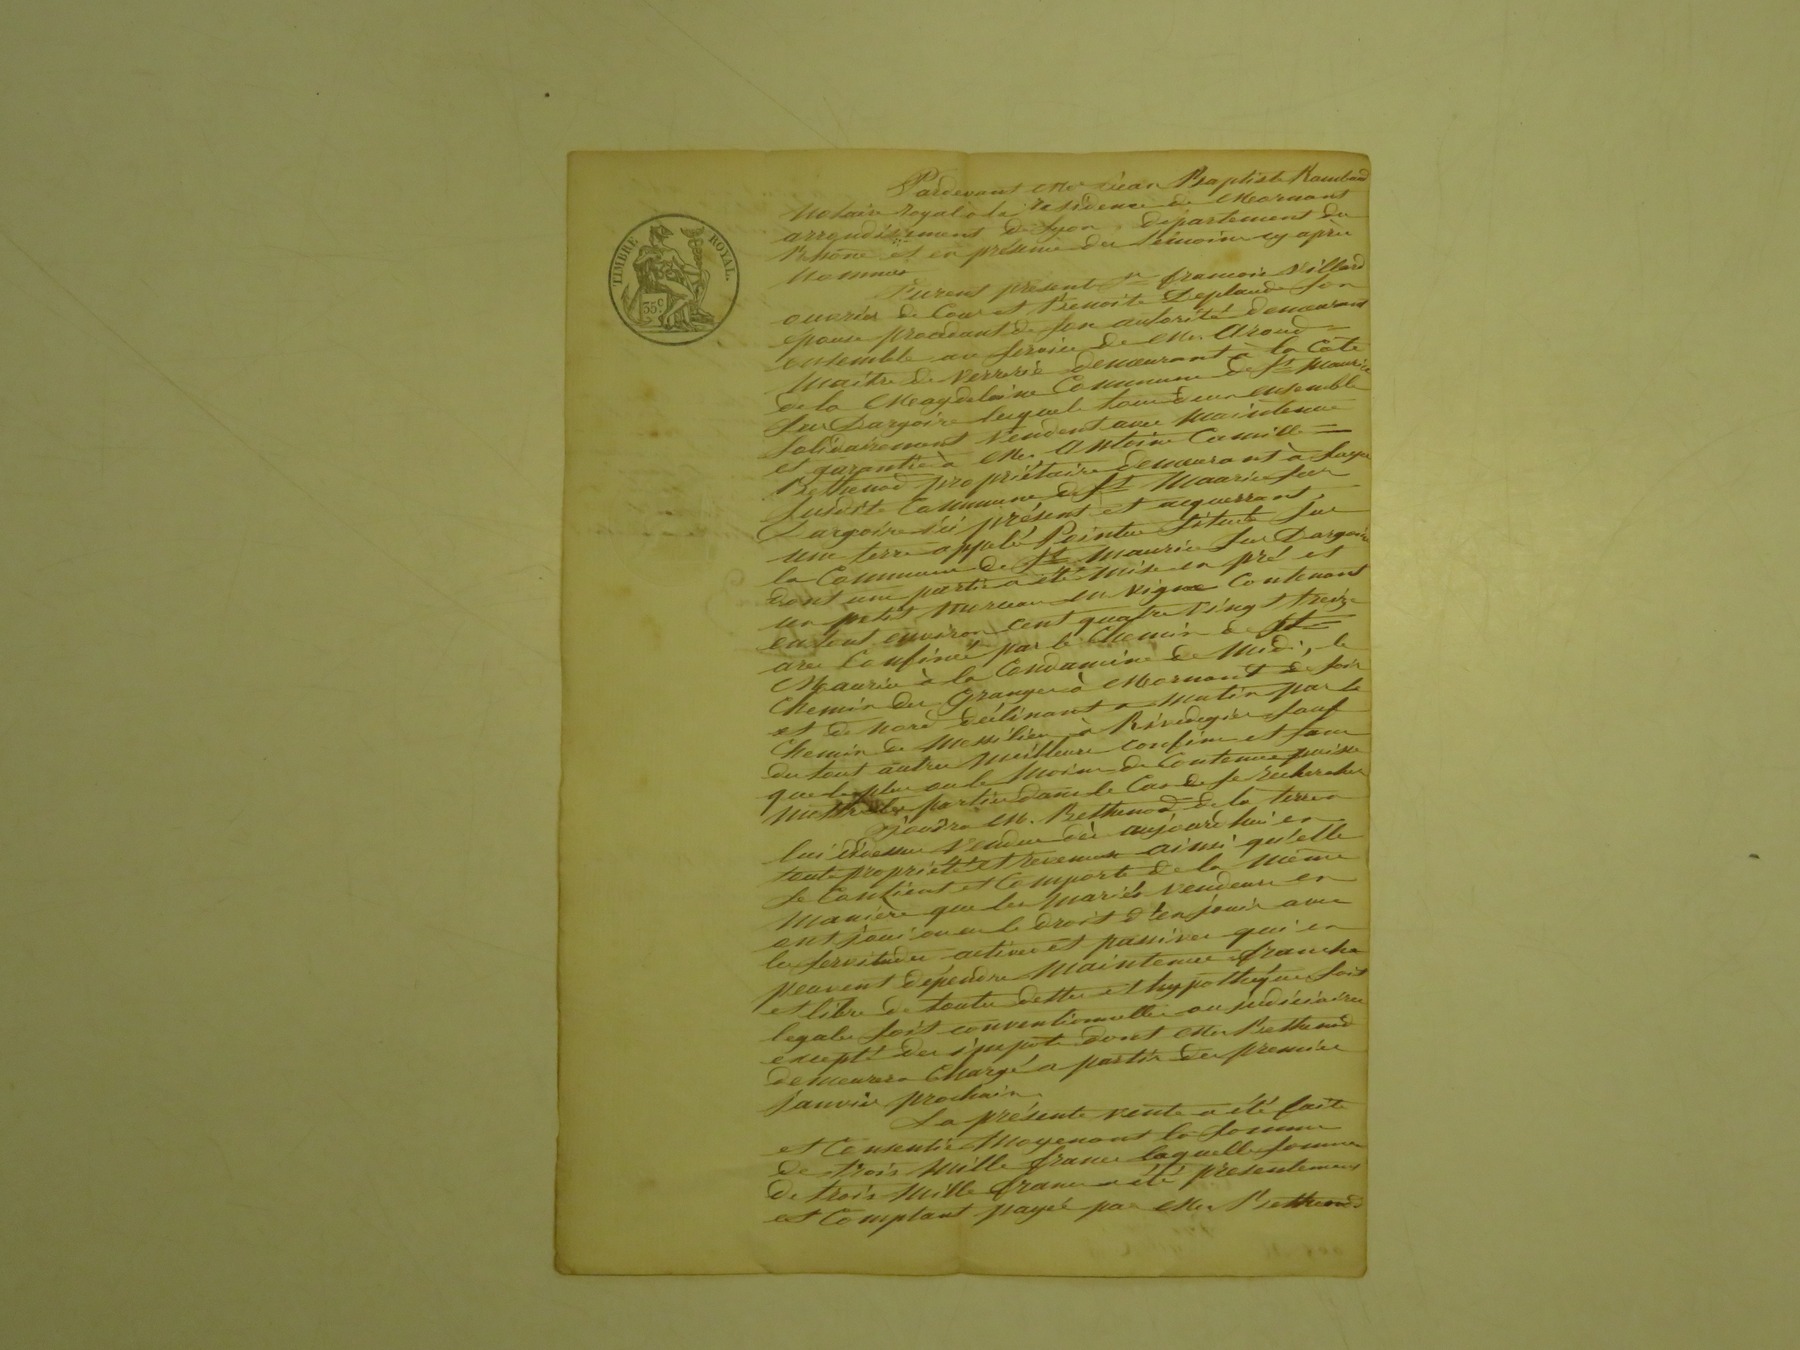 TIMBRE ROYAL.
35c.
Pardevant Me Jean Baptiste Rambaud
Notaire royal à la résidence de Mornant
arrondissement de Lyon, département du
Rhône et en présence des témoins cy après
Nommés
Furent présents Sr françois Villard
ouvrier de Cour et Benoite Deplaude son
épouse procédant de son autorité demeurant
ensemble au service de Mr. Aroud
Maitre de Verrerie demeurant à la Côte
de la Magdelaine Commune de St Maurice
sur Dargoire lesquels tous deux ensemble
solidairement Vendent avec Maintenue
et garantie à Mr. Antoine Camille
Bethenod propriétaire demeurant à
susdite Commune de St Maurice sur
Dargoire ici présent et acquérant,
une terre appelé Pointue située sur
la Commune de St Maurice sur Dargoire
dont une partie a été mise en pré et
un petit morceau en Vigne Contenant
en tout environ cent quatre vingt treize
ares Confinée par le Chemin de St
Maurice à la Condamine de Midi, le
Chemin des Granges à Mornant de soir
et de Nord déclinant a Matin par le
Chemin de Messilieu à Rivedegier sauf
de tout autres Meilleurs confins et sans
que le plus ou le Moins de Contenue puisse
Mettre les parties dans le Cas de se rechercher
Jouira Mr. Bethenod de la terre a
lui cidessus Vendue dès aujourd'hui en
toute propriété et revenus ainsi qu'elle
se Contient et Comporte de la même
Manière que les Mariés Vendeurs en
ont joui ou eu le droit d'en jouir avec
les servitudes actives et passives qui en
peuvent dépendre Maintenue franche
et libre de toutes dettes et hypothèques soit
légales soit conventionnelles ou judiciaires
excepté des impots dont Mr Bethenod
demeurera Chargé a partir du premier
janvier prochain.
La présente vente a été faite
et Consentie Moyenant la somme
de trois Mille francs laquelle somme
de trois Mille francs a été présentement
et Comptant payée par Mr Bethenod